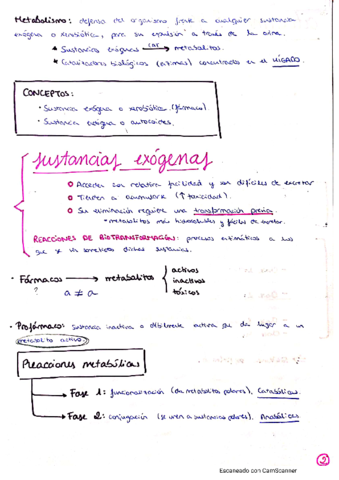 Metabolismo: defensa del organismo frente a cualquier sustancia
exógena o xenobiótica, para su expulsión a través de la orina.
Sustancias exógenas CAT → metabolitos.
Catalizadores biológicos (enzimas) concentrados en el HÍGADO.
CONCEPTOS:
· Sustancia exógena o xenobiótica (fármaco).
· Sustancia endógena o autacoides.
sustancias exógenas
Acceden con relativa facilidad y son difíciles de excretar
Tienden a acumularse (↑ toxicidad).
Su eliminación requiere una transformación previa
metabolitos más hidrosolubles y fáciles de excretar.
REACCIONES DE BIOTRANSFORMACIÓN: procesos enzimáticos a los
que se ven sometidas dichas sustancias.
· Fármacos → metabolitos
activos
inactivos
tóxicos
? a ≠ a
· Profármaco: Sustancia inactiva o débilmente activa que da lugar a un
metabolito activo
Reacciones metabólicas
→ Fase 1: funcionalización (da metabolitos polares). Catabólicas.
→ Fase 2: conjugación (se unen a sustancias polares). Anabólicas
2
Escaneado con CamScanner